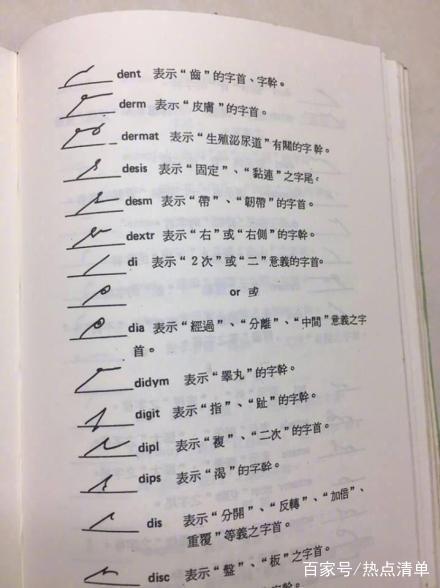 dent 表示“齒”的字首、字幹。
derm 表示“皮膚”的字首。
dermat 表示“生殖泌尿道”有關的字幹。
desis 表示“固定”、“黏連”之字尾。
desm 表示“帶”、“韌帶”的字首。
dextr 表示“右”或“右側”的字幹。
di 表示“2次”或“二”意義的字首。
or 或
dia 表示“經過”、“分離”、“中間”意義之字
首。
didym 表示“睪丸”的字幹。
digit 表示“指”、“趾”的字幹。
dipl 表示“複”、“二次”的字首。
dips 表示“渴”的字幹。
dis 表示“分開”、“反轉”、“加倍”、
重覆”等義之字首。
disc 表示“盤”、“板”之字首。
百家号/热点清单